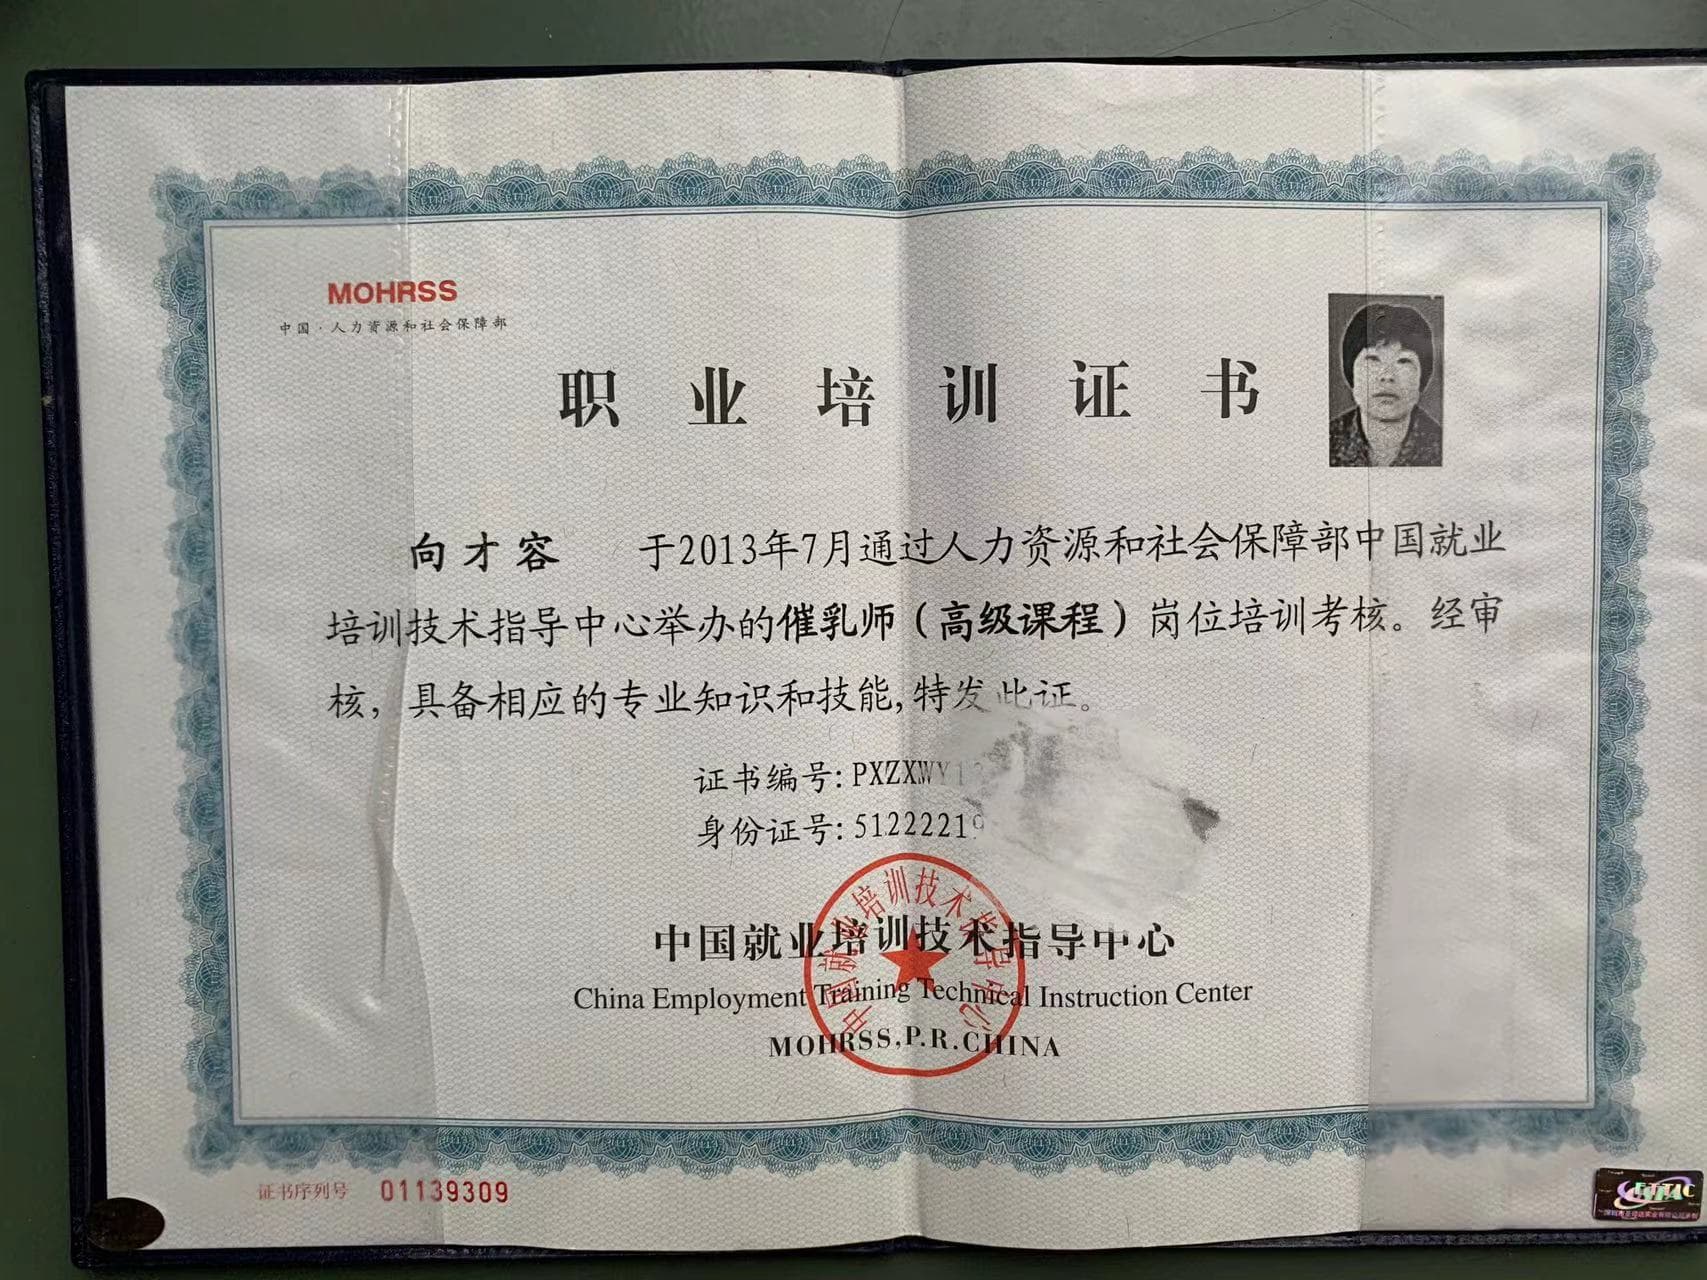 MOHRSS
中国·人力资源和社会保障部
职业培训证书
向才容 于2013年7月通过人力资源和社会保障部中国就业
培训技术指导中心举办的催乳师(高级课程)岗位培训考核。经审
核,具备相应的专业知识和技能,特发此证。
证书编号:PXZXWY1
身份证号:51222219
中国就业培训技术指导中心
中国就业培训技术指导中心
China Employment Training Technical Instruction Center
MOHRSS,P.R.CHINA
证书序列号 01139309